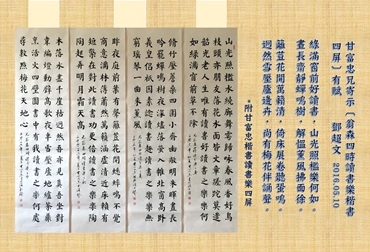 甘富忠兄寄示〔翁森四時讀書樂楷書
四屏〕有賦 鄧超文 2016.05.10
綠滿窗前好讀書,山光照檻樂何如。
晝長齋靜蟬鳴樹,解慍薰風拂面徐。
籬荳花開萬籟清,倚床展卷聽蛩鳴。
迥然雪壓廬邊卉,尚有梅花伴誦聲。
*附甘富忠楷書讀書樂四屏。
山光照檻水繞廊舞雩歸詠春風香好鳥
枝頭亦朋友落花水面皆文章蹉跎莫遣
韶光老人生唯有讀書好讀書之樂樂何
如綠滿窗前草不除
修竹壓檐桑四圍小齋幽敞明朱曦晝長
吟罷蟬鳴樹夜深燼落螢入帷北窗高臥
羲皇侶祇因素稔讀書趣讀書之樂樂無
窮瑤琴一曲來薰風
昨夜庭前葉有聲籬荳花開蟋蟀鳴不覺
商意滿林薄蕭然萬籟涵虛清近床賴有
短檠在對此讀書功更倍讀書之樂樂陶
陶起弄明月霜天高
木落水盡千崖枯迥然吾亦見真吾坐對
韋編燈動壁高歌夜半雪壓廬地爐茶鼎
烹活火四壁圖書中有我讀書之樂何處
尋數點梅花天地心